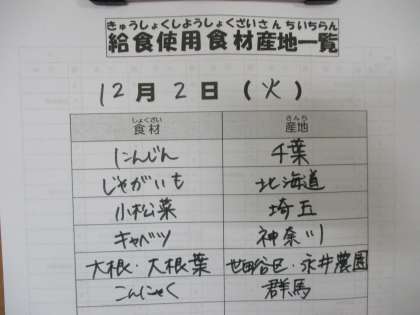 きゅうしょくしようしょくざいさんちいちらん
給食使用食材産地一覧
12月2日(火)
しょくざい さんち
食材 産地
にんじん 千葉
じゃがいも 北海道
小松菜 埼玉
キャベツ 神奈川
大根・大根葉 世田谷区・永井農園
こんにゃく 群馬